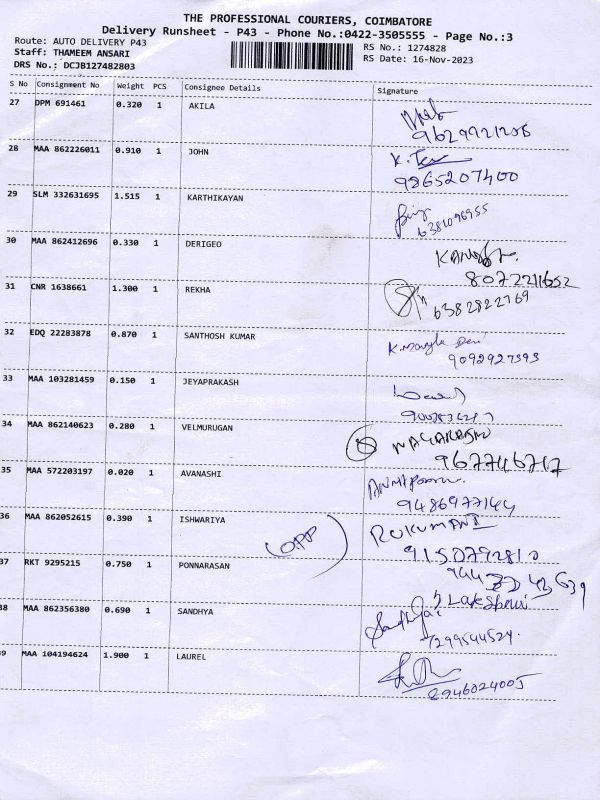 THE PROFESSIONAL COURIERS, COIMBATORE
Delivery Runsheet - P43 - Phone No.:0422-3505555 - Page No.:3
Route: AUTO DELIVERY P43
RS No.: 1274828
Staff: THAMEEM ANSARI
RS Date: 16-Nov-2023
DRS No.: DCJB127482803
S No Consignment No Weight PCS Consignee Details Signature
27 DPM 691461 0.320 1 AKILA
9629721206
28 MAA 862226011 0.910 1 JOHN K.
9865207400
29 SLM 332631695 1.515 1 KARTHIKAYAN
6381096955
30 MAA 862412696 0.330 1 DERIGEO
8072211652
31 CNR 1638661 1.300 1 REKHA
6382822769
32 EDQ 22283878 0.870 1 SANTHOSH KUMAR K.
9092927393
33 MAA 103281459 0.150 1 JEYAPRAKASH
34 MAA 862140623 0.280 1 VELMURUGAN NAGARAJAN
967746717
35 MAA 572203197 0.020 1 AVANASHI
9486977144
36 MAA 862052615 0.390 1 ISHWARIYA RUKUMANI
(OPP)
9150792810
37 RKT 9295215 0.750 1 PONNARASAN
38 MAA 862356380 0.690 1 SANDHYA Sandhya
7299544524.
39 MAA 104194624 1.900 1 LAUREL